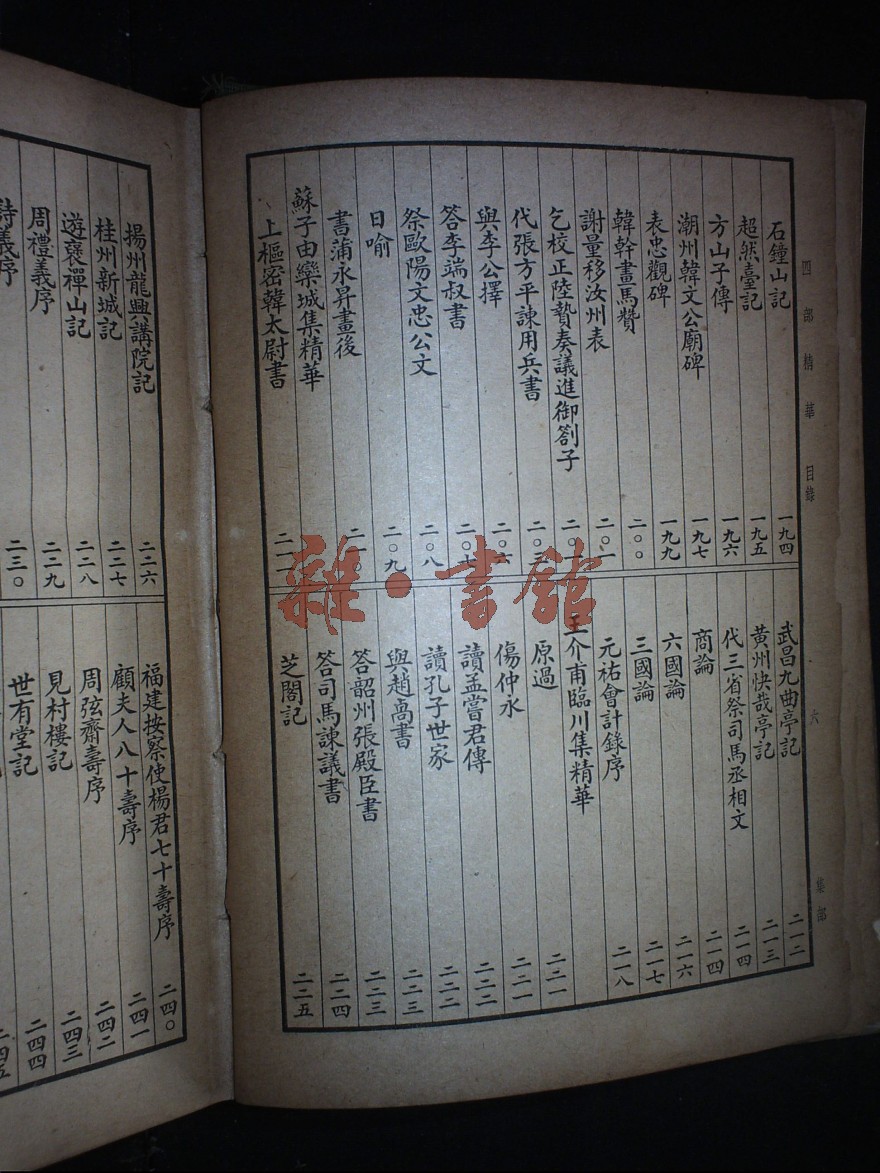 四部精華 目錄 六 集部
石鐘山記 一九四
超然臺記 一九五
方山子傳 一九六
潮州韓文公廟碑 一九七
表忠觀碑 一九九
韓幹畫馬贊 二〇〇
謝量移汝州表 二〇一
乞校正陸贄奏議進御劄子
代張方平諫用兵書
與李公擇
答李端叔書
祭歐陽文忠公文 二〇八
日喻 二〇九
書蒲永昇畫後
蘇子由欒城集精華
上樞密韓太尉書 二一一
武昌九曲亭記 二一二
黃州快哉亭記 二一三
代三省祭司馬丞相文 二一四
商論 二一四
六國論 二一六
三國論 二一七
元祐會計錄序 二一八
王介甫臨川集精華
原過 二二一
傷仲永 二二一
讀孟嘗君傳 二二二
讀孔子世家 二二二
與趙卨書 二二三
答韶州張殿臣書 二二三
答司馬諫議書 二二四
芝閣記 二二五
揚州龍興講院記 二二六
桂州新城記 二二七
遊褒禪山記 二二八
周禮義序 二二九
詩義序 二三〇
福建按察使楊君七十壽序 二四〇
顧夫人八十壽序 二四一
周弦齋壽序 二四二
見村樓記 二四三
世有堂記 二四四
二四五
雜·書館